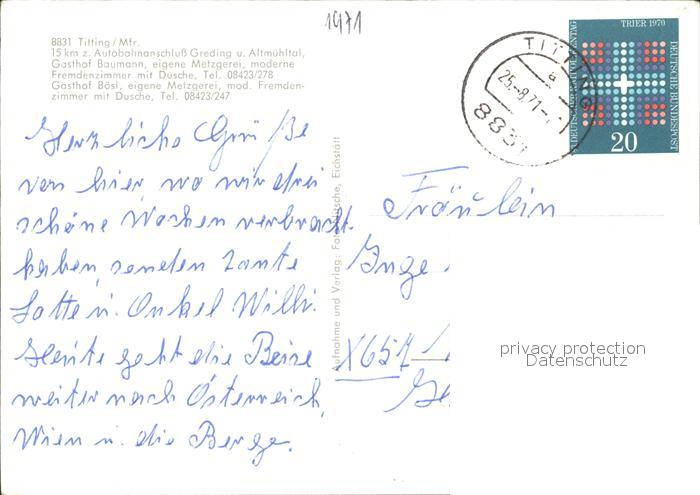 1971
8831 Titting/Mfr.
15 km z. Autobahnanschluß Greding u. Altmühltal,
Gasthof Baumann, eigene Metzgerei, moderne
Fremdenzimmer mit Dusche, Tel. 08423/278
Gasthof Bösl, eigene Metzgerei, mod. Fremden-
zimmer mit Dusche, Tel. 08423/247
Herzliche Grüße
von hier, wo wir drei
schöne Wochen verbracht
haben, senden Tante
Lotte u. Onkel Willi.
Heute geht die Reise
weiter nach Österreich,
Wien u. die Berge.
Aufnahme und Verlag: Foto Eichstätt
TITTING
a
25.-8.71
8831
TRIER 1970
DEUTSCHER KATHOLIKENTAG
DEUTSCHE BUNDESPOST
20
Fräulein
Inge
X65
Ge
privacy protection
Datenschutz